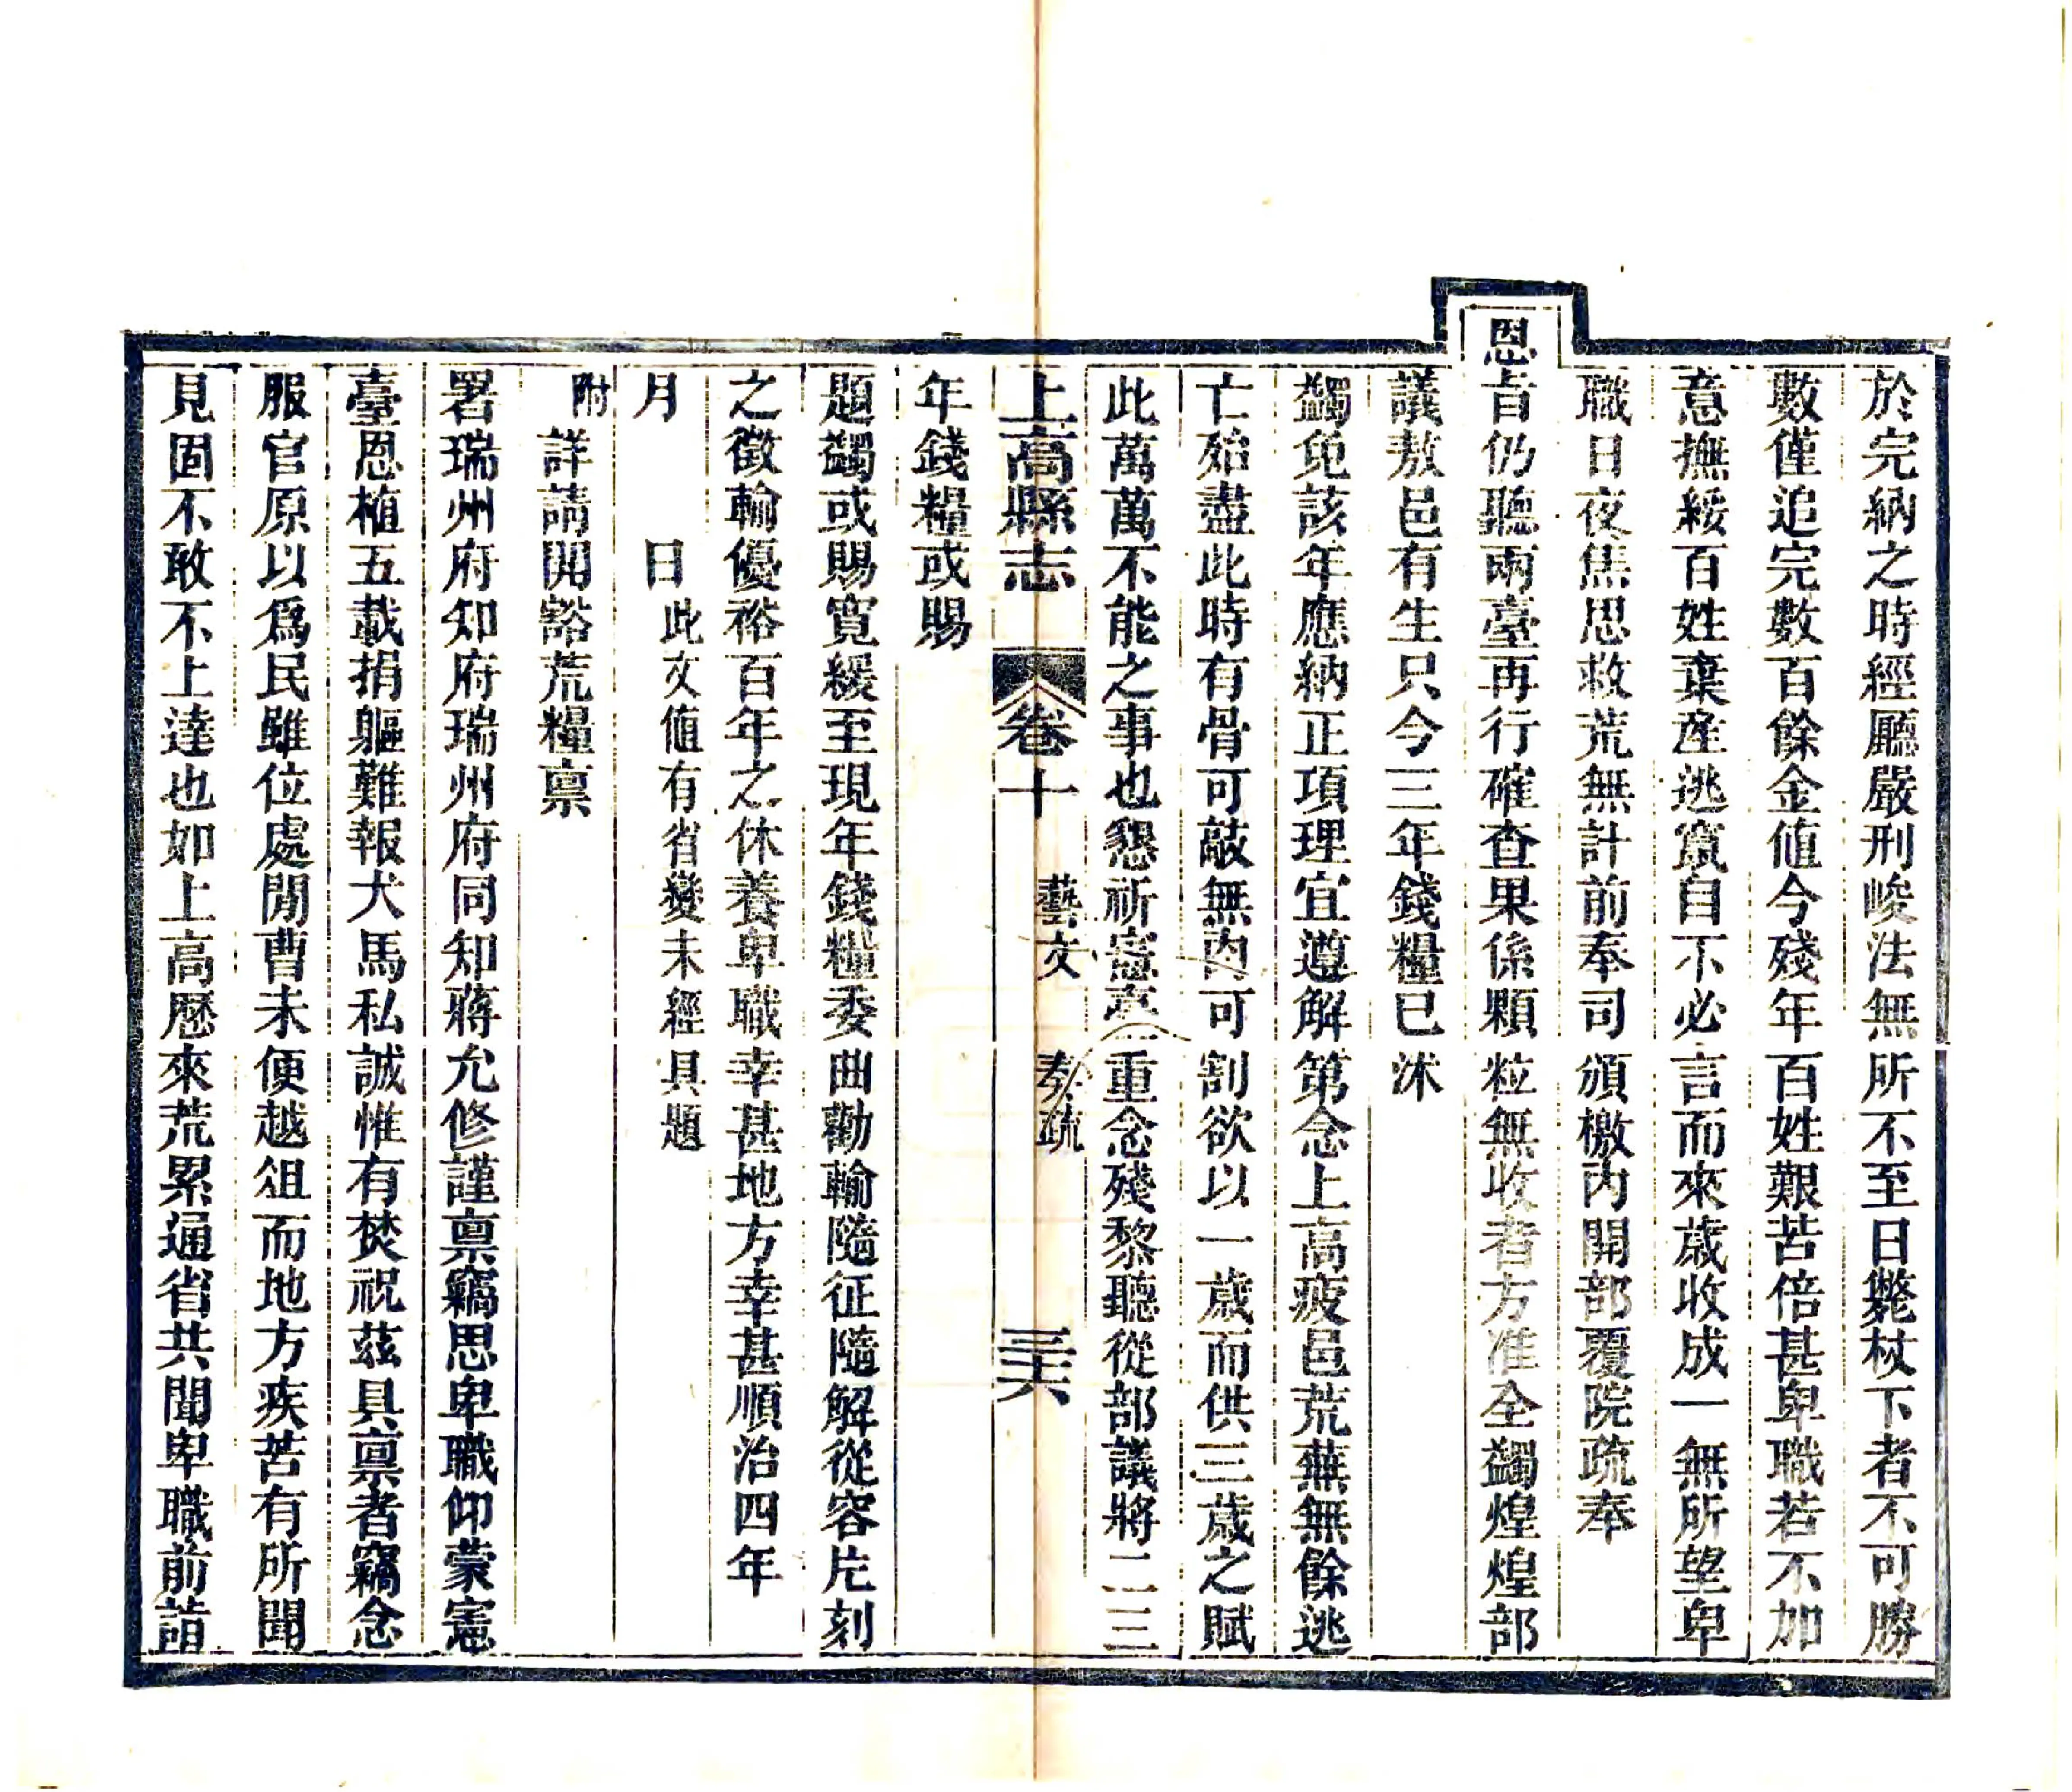 於完納之時經廳嚴刑峻法無所不至日斃杖下者不可勝
數僅追完數百餘金值今殘年百姓艱苦倍甚卑職若不加
意撫綏百姓棄產逃竄自不必言而來歲收成一無所望卑
職日夜焦思救荒無計前奉司頒檄內開部覆院疏奉
恩旨仍聽兩臺再行確查果係顆粒無收者方准全蠲煌煌部
議敖邑有生只今三年錢糧已沐
蠲免該年應納正項理宜遵解第念上高疲邑荒蕪無餘逃
亡殆盡此時有骨可敲無肉可割欲以一歲而供三歲之賦
此萬萬不能之事也懇祈憲重念殘黎聽從部議將二三
上高縣志 卷十 藝文 奏疏 三六
年錢糧或賜
題蠲或賜寬緩至現年錢糧委曲勸輸隨征隨解從容片刻
之徵輸優裕百年之休養卑職幸甚地方幸甚順治四年
月 日此文值有省變未經具題
附
詳請開豁荒糧稟
署瑞州府知府瑞州府同知蔣允修謹稟竊思卑職仰蒙憲
臺恩植五載捐軀難報犬馬私誠惟有焚祝茲具稟者竊念
服官原以爲民雖位處閒曹未便越俎而地方疾苦有所聞
見固不敢不上達也如上高歷來荒累通省共聞卑職前詣